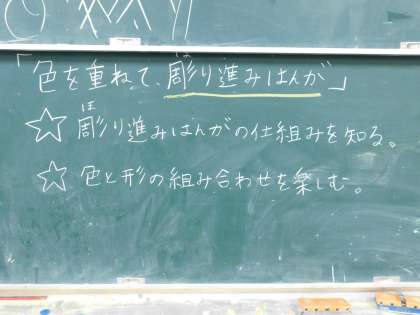 「色を重ねて、彫り進みはんが」
☆ 彫り進みはんがの仕組みを知る。
☆ 色と形の組み合わせを楽しむ。